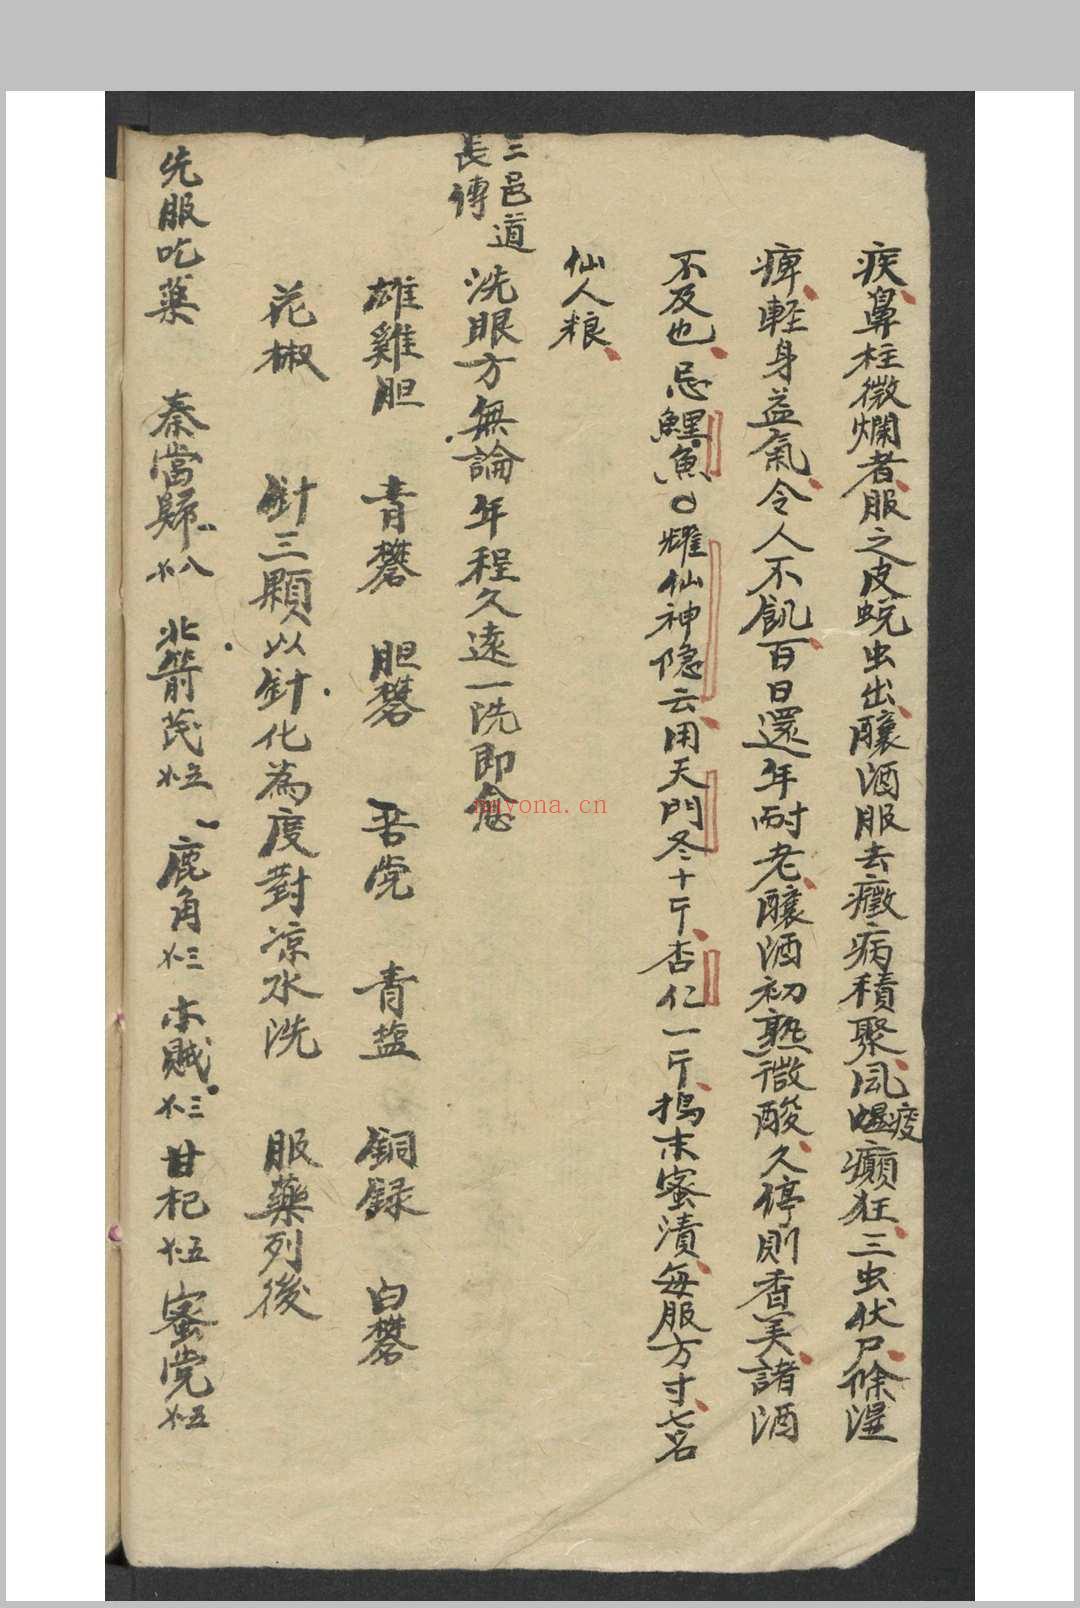 疾鼻柱微爛者服之皮蛻虫出釀酒服去癥病積聚風痰癲狂三虫伏尸除湿
痺軽身益氣令人不飢百日還年耐老釀酒初熟微酸久停則香美諸酒
不及也忌鯉魚○臞仙神隐云用天門冬十斤杏仁一斤搗末蜜漬每服方寸七名
仙人粮
三邑道長傳
洗眼方無論年程久遠一洗即愈
雄雞胆 青礬 胆礬 吾党 青盐 銅録 白礬
花椒 針三顆以針化為度對凉水洗 服藥列後
先服吃藥 秦當歸 北箭芪 鹿角 木賊 甘杞 蜜党
nuyona.cn